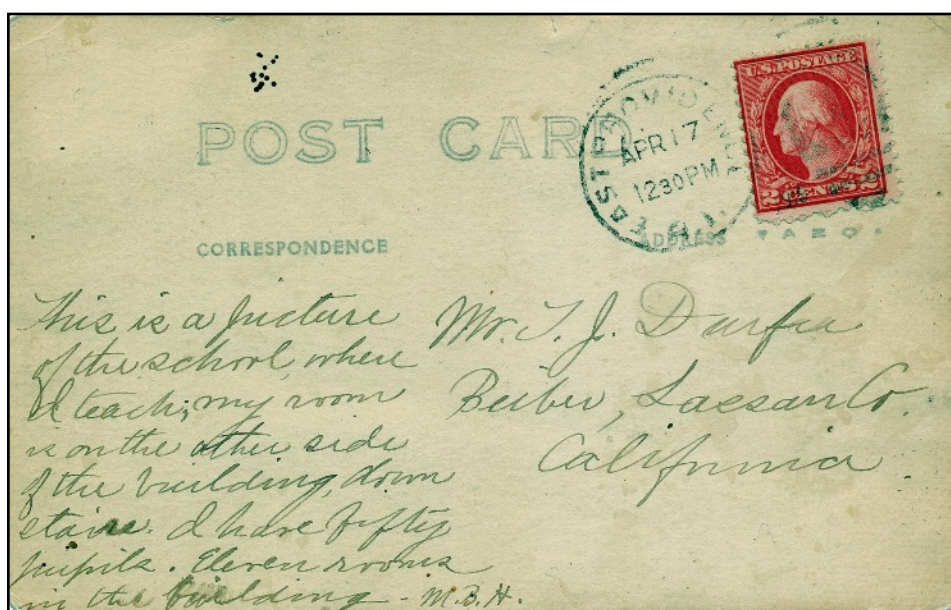 POST CARD
EAST PROVIDENCE
APR 17
1230 PM
R.I.
U.S. POSTAGE
2 CENTS 2
CORRESPONDENCE
ADDRESS
This is a picture
of the school, where
I teach; my room
is on the other side
of the building, down
stairs. I have fifty
pupils. Eleven rooms
in the building - M.B.H.
Mr. T. J. Durfea
Beiber, Lassan Co.
California